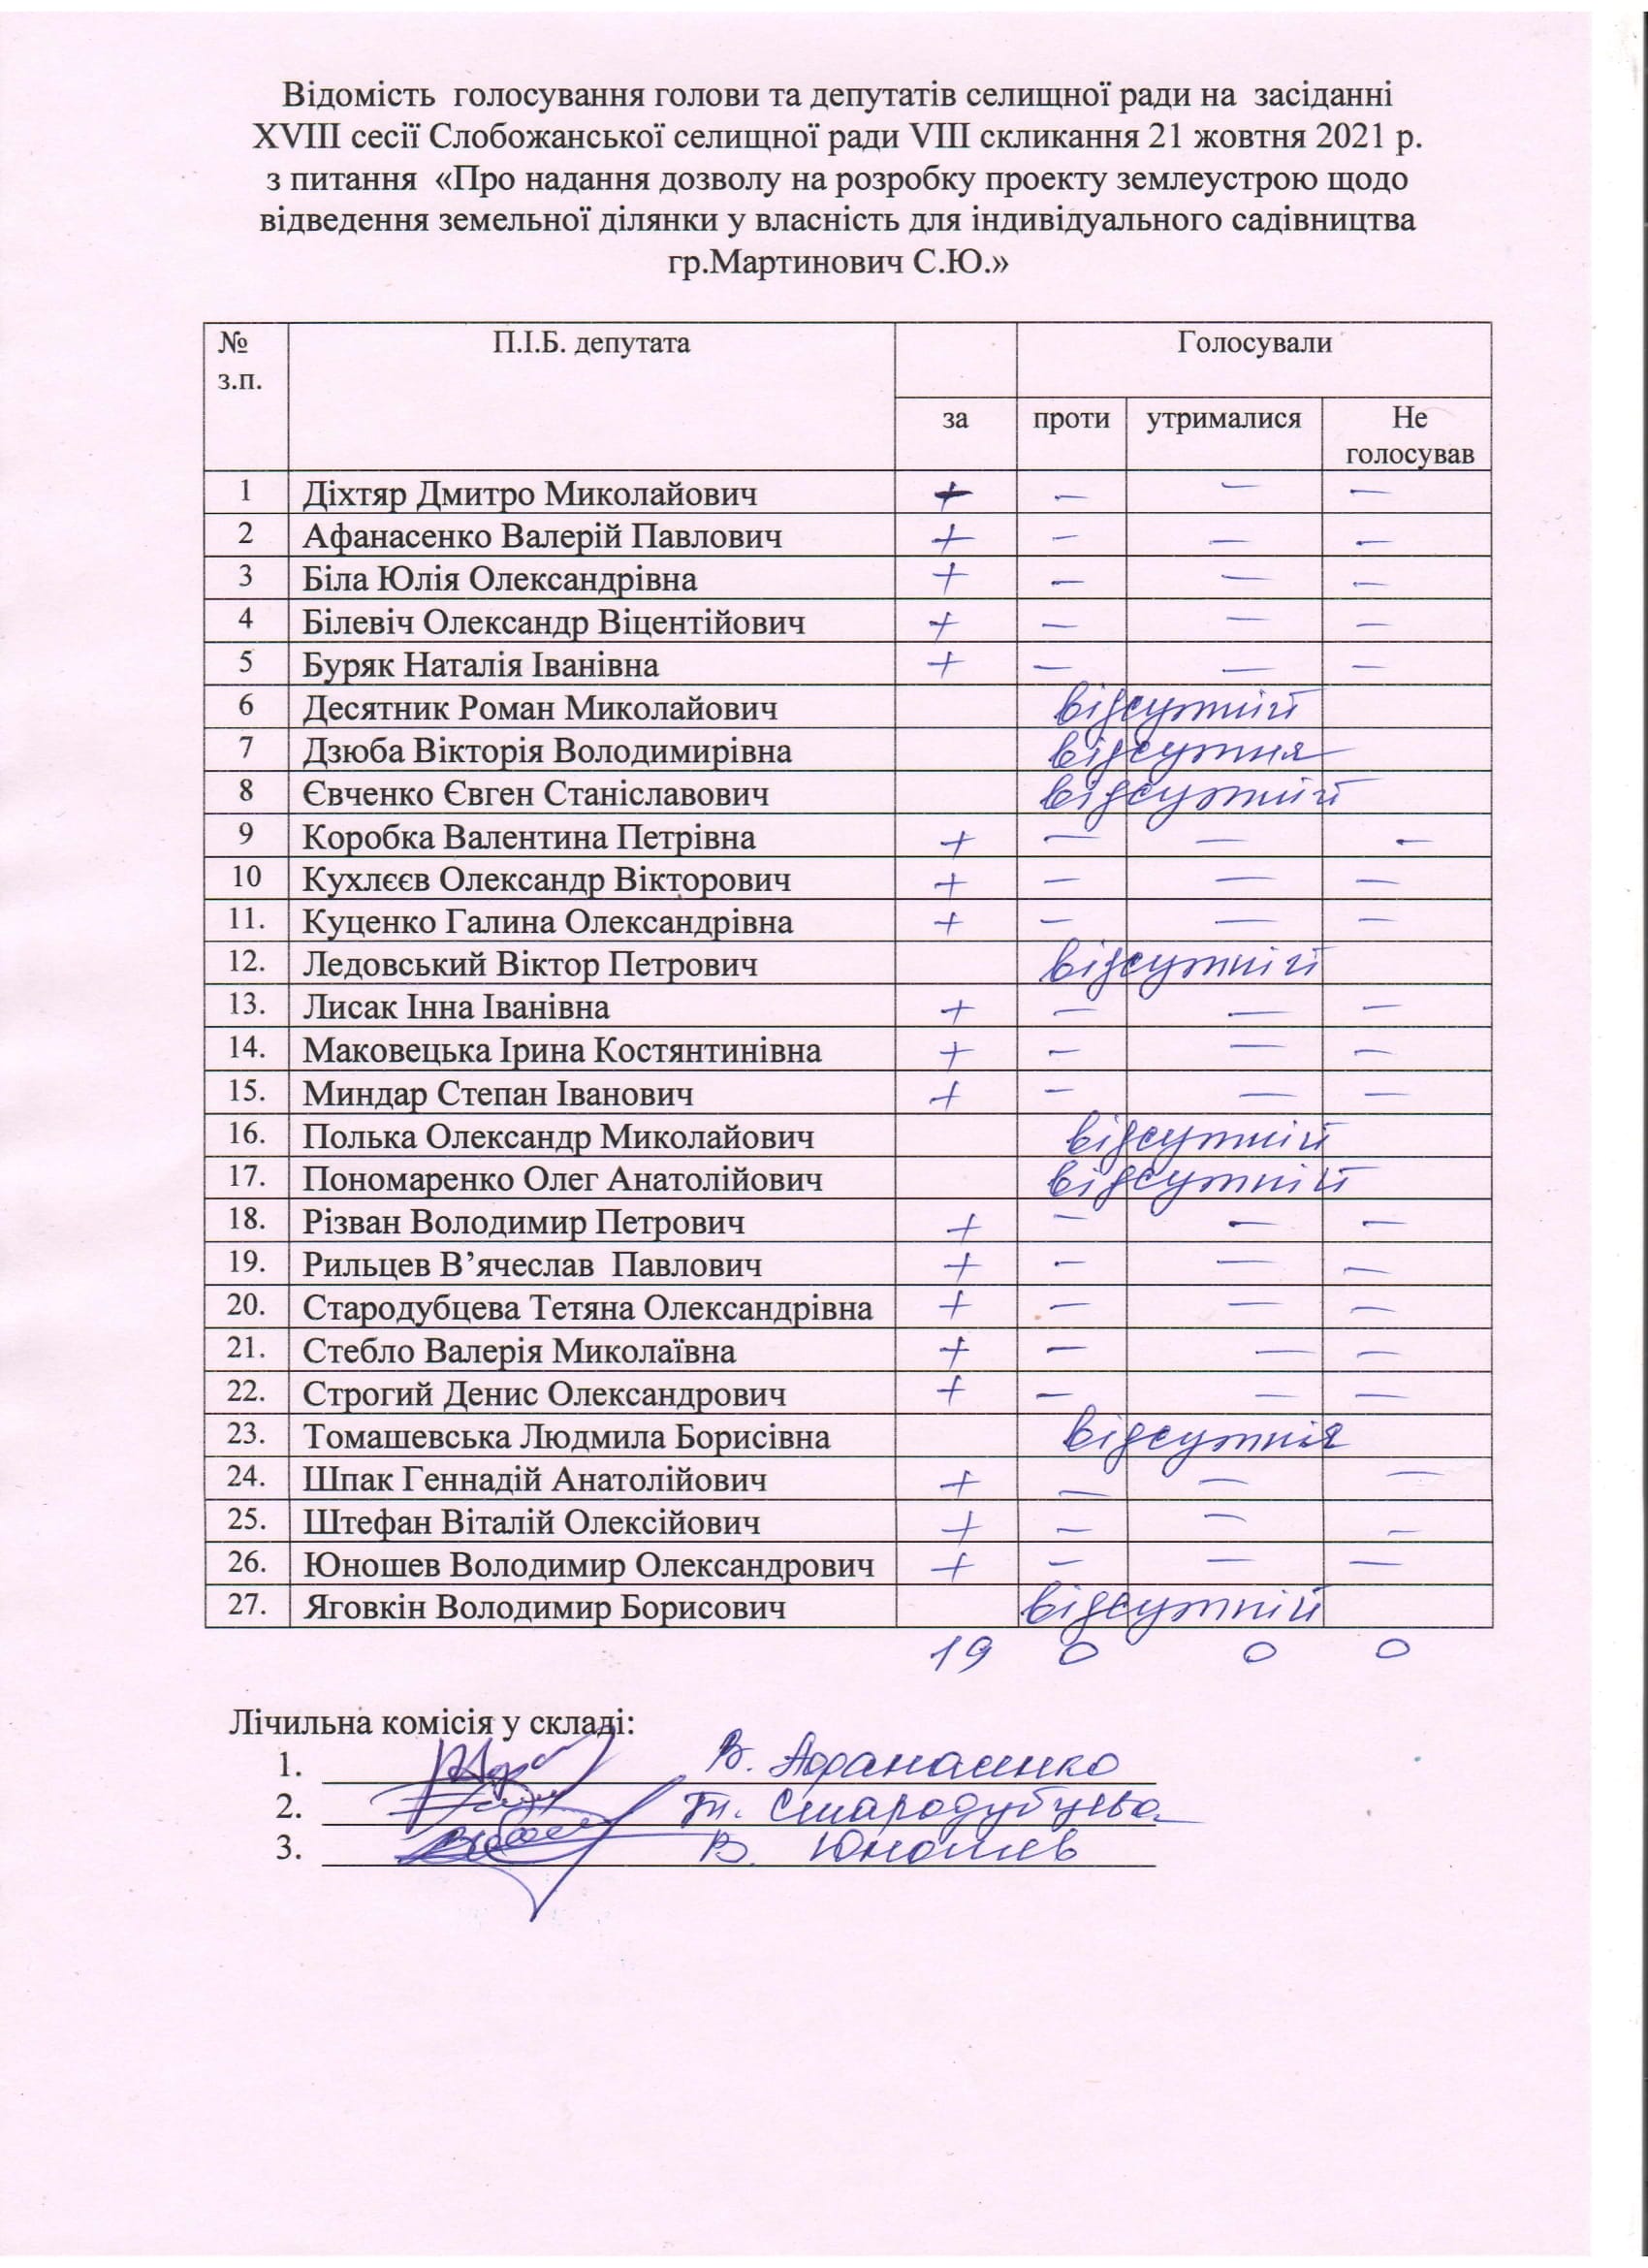 Відомість голосування голови та депутатів селищної ради на засіданні
XVIII сесії Слобожанської селищної ради VIII скликання 21 жовтня 2021 р.
з питання «Про надання дозволу на розробку проекту землеустрою щодо
відведення земельної ділянки у власність для індивідуального садівництва
гр.Мартинович С.Ю.»
№ з.п. П.І.Б. депутата Голосували
за проти утрималися Не голосував
1 Діхтяр Дмитро Миколайович + — — —
2 Афанасенко Валерій Павлович + — — —
3 Біла Юлія Олександрівна + — — —
4 Білевіч Олександр Віцентійович + — — —
5 Буряк Наталія Іванівна + — — —
6 Десятник Роман Миколайович відсутній
7 Дзюба Вікторія Володимирівна відсутня
8 Євченко Євген Станіславович відсутній
9 Коробка Валентина Петрівна + — — —
10 Кухлєєв Олександр Вікторович + — — —
11. Куценко Галина Олександрівна + — — —
12. Ледовський Віктор Петрович відсутній
13. Лисак Інна Іванівна + — — —
14. Маковецька Ірина Костянтинівна + — — —
15. Миндар Степан Іванович + — — —
16. Полька Олександр Миколайович відсутній
17. Пономаренко Олег Анатолійович відсутній
18. Різван Володимир Петрович + — — —
19. Рильцев В’ячеслав Павлович + — — —
20. Стародубцева Тетяна Олександрівна + — — —
21. Стебло Валерія Миколаївна + — — —
22. Строгий Денис Олександрович + — — —
23. Томашевська Людмила Борисівна відсутня
24. Шпак Геннадій Анатолійович + — — —
25. Штефан Віталій Олексійович + — — —
26. Юношев Володимир Олександрович + — — —
27. Яговкін Володимир Борисович відсутній
19 0 0 0
Лічильна комісія у складі:
1. В. Афанасенко
2. Т. Стародубцева
3. В. Юношев